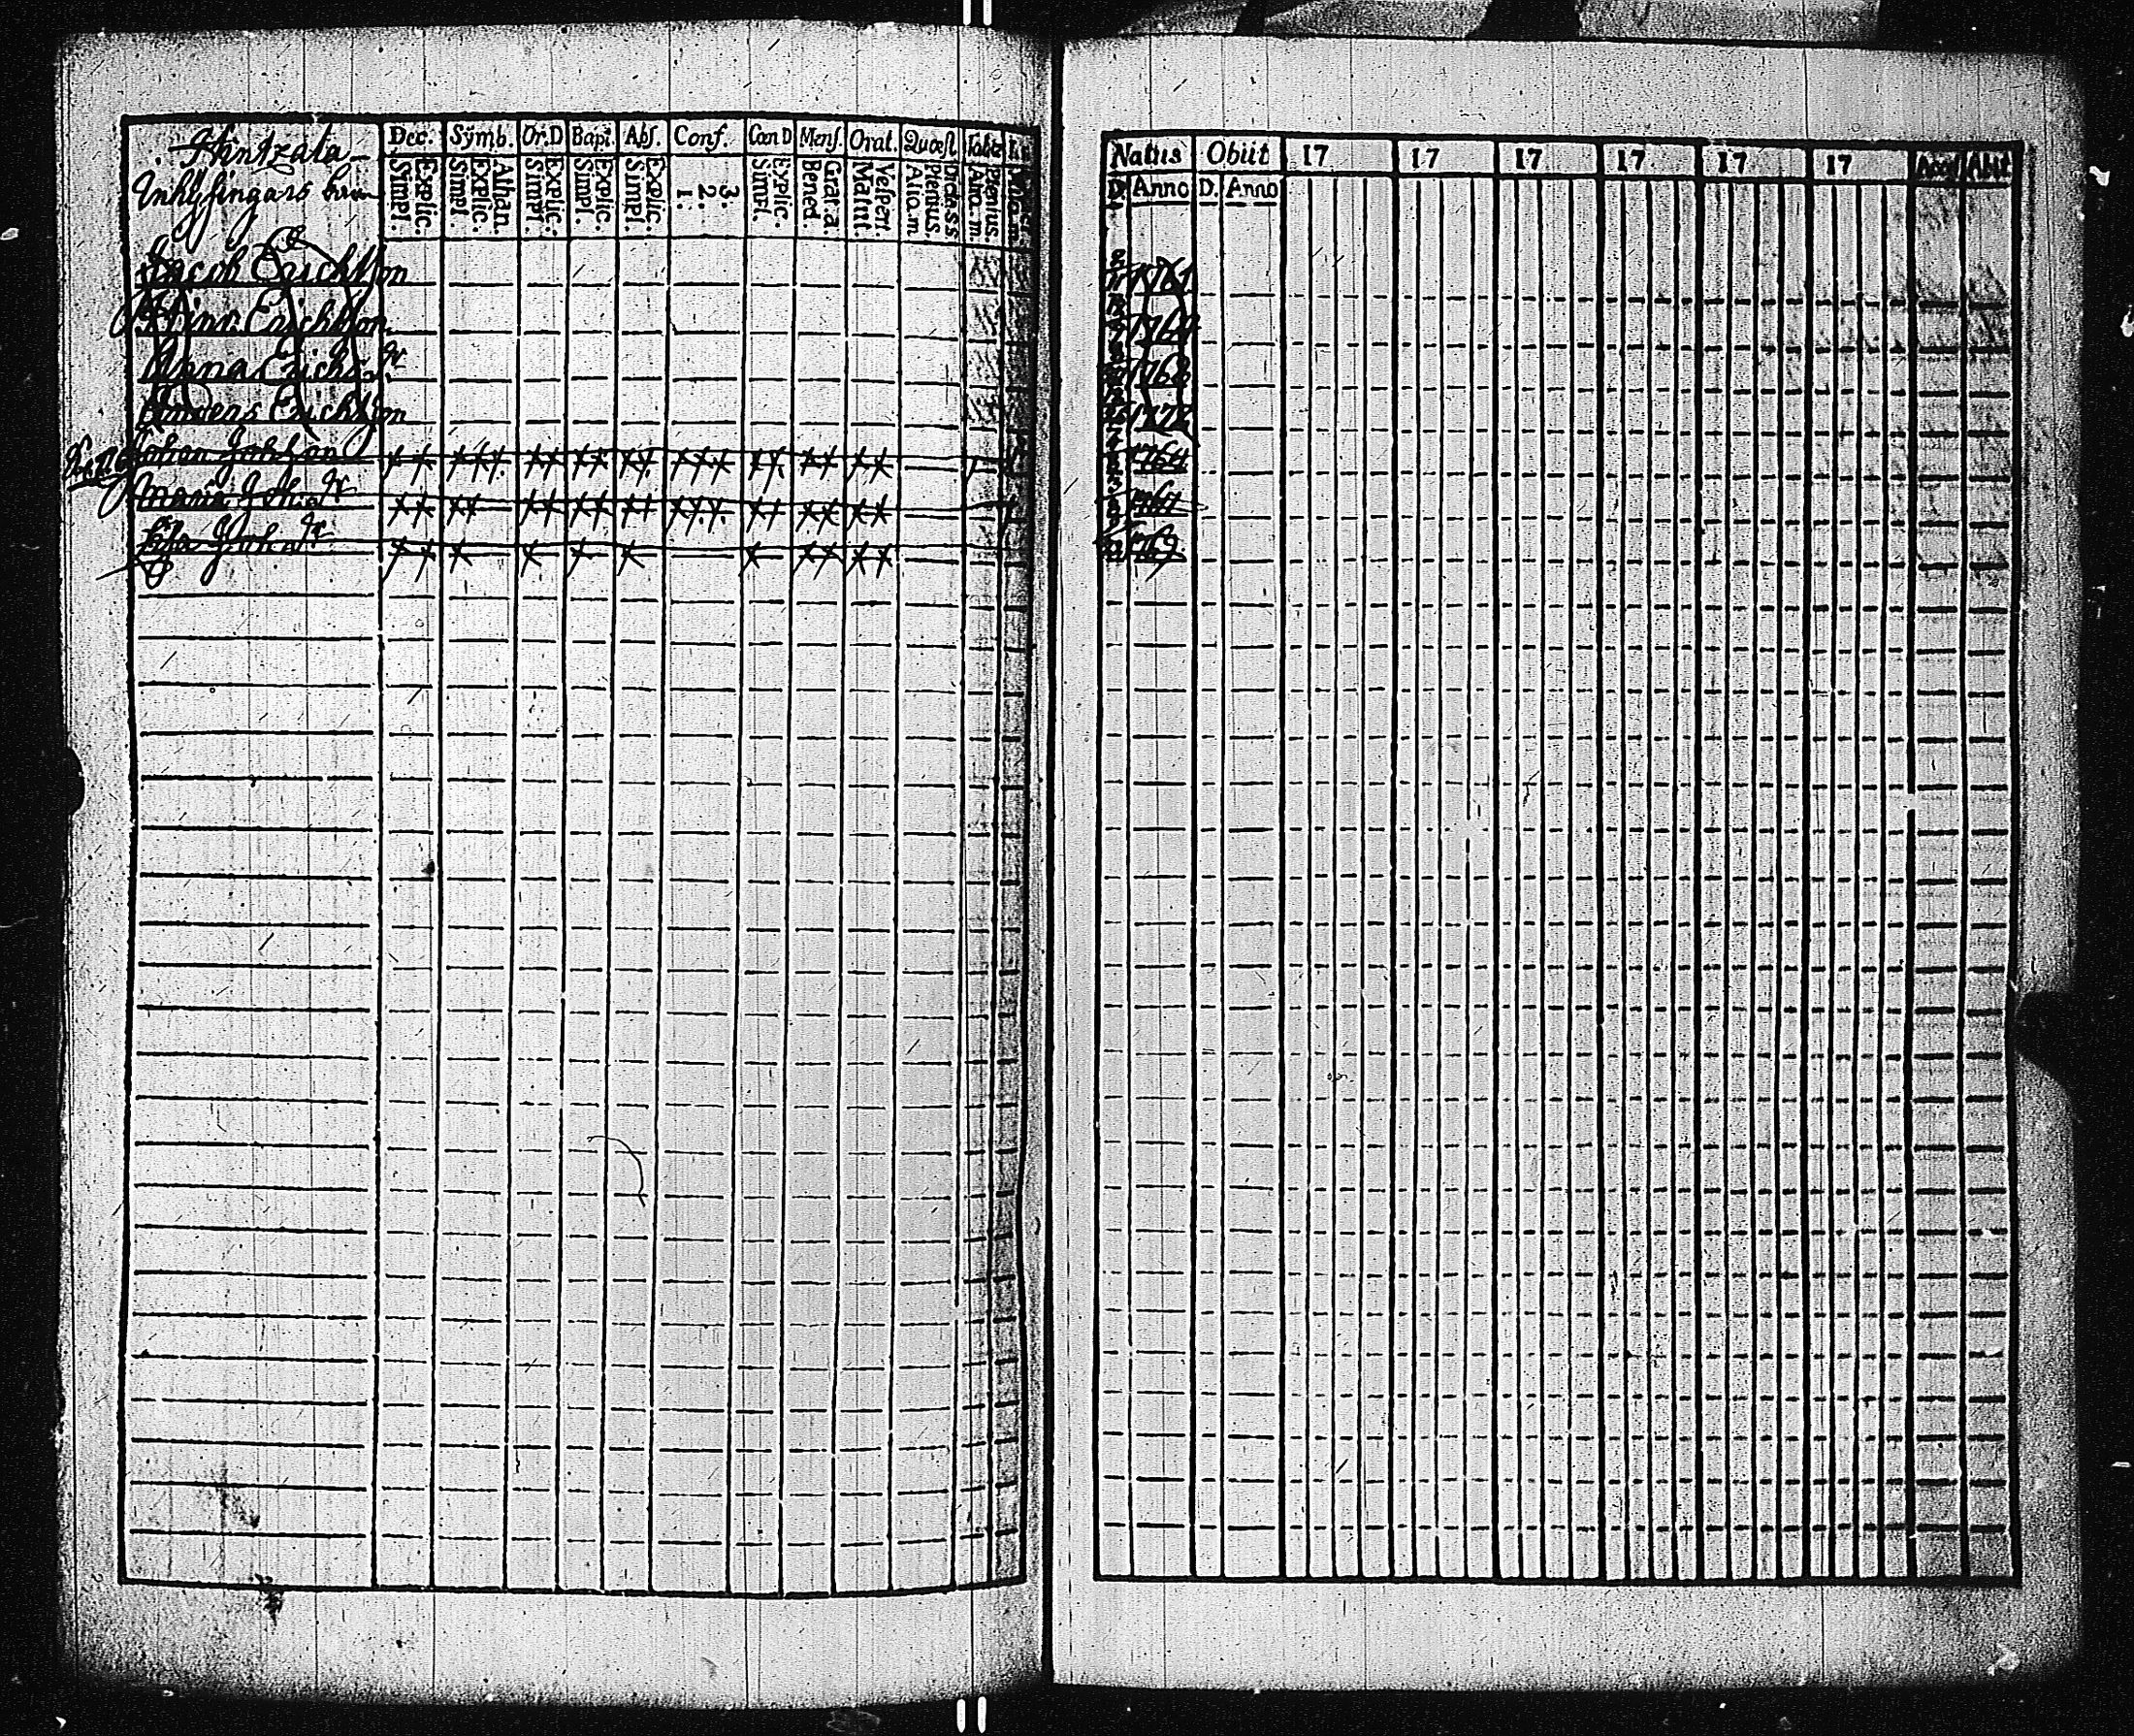 Hintzala
Inhysingars barn
Dec. Symb. Or.D Bapt. Abs. Conf. Cæn D Mens. Orat. Quæst Tabla
Explic. Simpl. Athan. Explic. Simpl. Explic. Simpl. Explic. Simpl. Explic. Simpl. 3. 2. 1. Explic. Simpl. Grat. a. Bened. Vespert. Matut. Dicta S.S. Plenius. Alio. m. Plenius. Alio. m
Jacob Erichsson
Hinr. Erichsson
Anna Erichs dr
Anders Erichsson
Johan Johsson
Maria Joh. dr
Lisa Joh. dr
Natus Obiit 17 17 17 17 17 17 Acces Abit
D. Anno D. Anno
1761
1764
1768
1772
1764
1767
1769